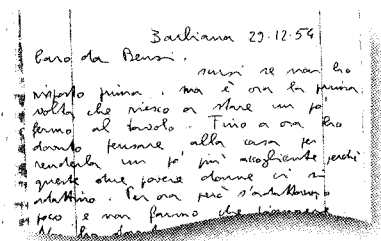 Barbiana 29.12.54
Caro don Bensi,
scusi se non ho
risposto prima, ma è ora la prima
volta che riesco a stare un po'
fermo al tavolo. Fino a ora ho
dovuto pensare alla casa per
renderla un po' più accogliente perché
queste due povere donne ci si
adattino. Per ora però s'adattano
poco e non fanno che piangere